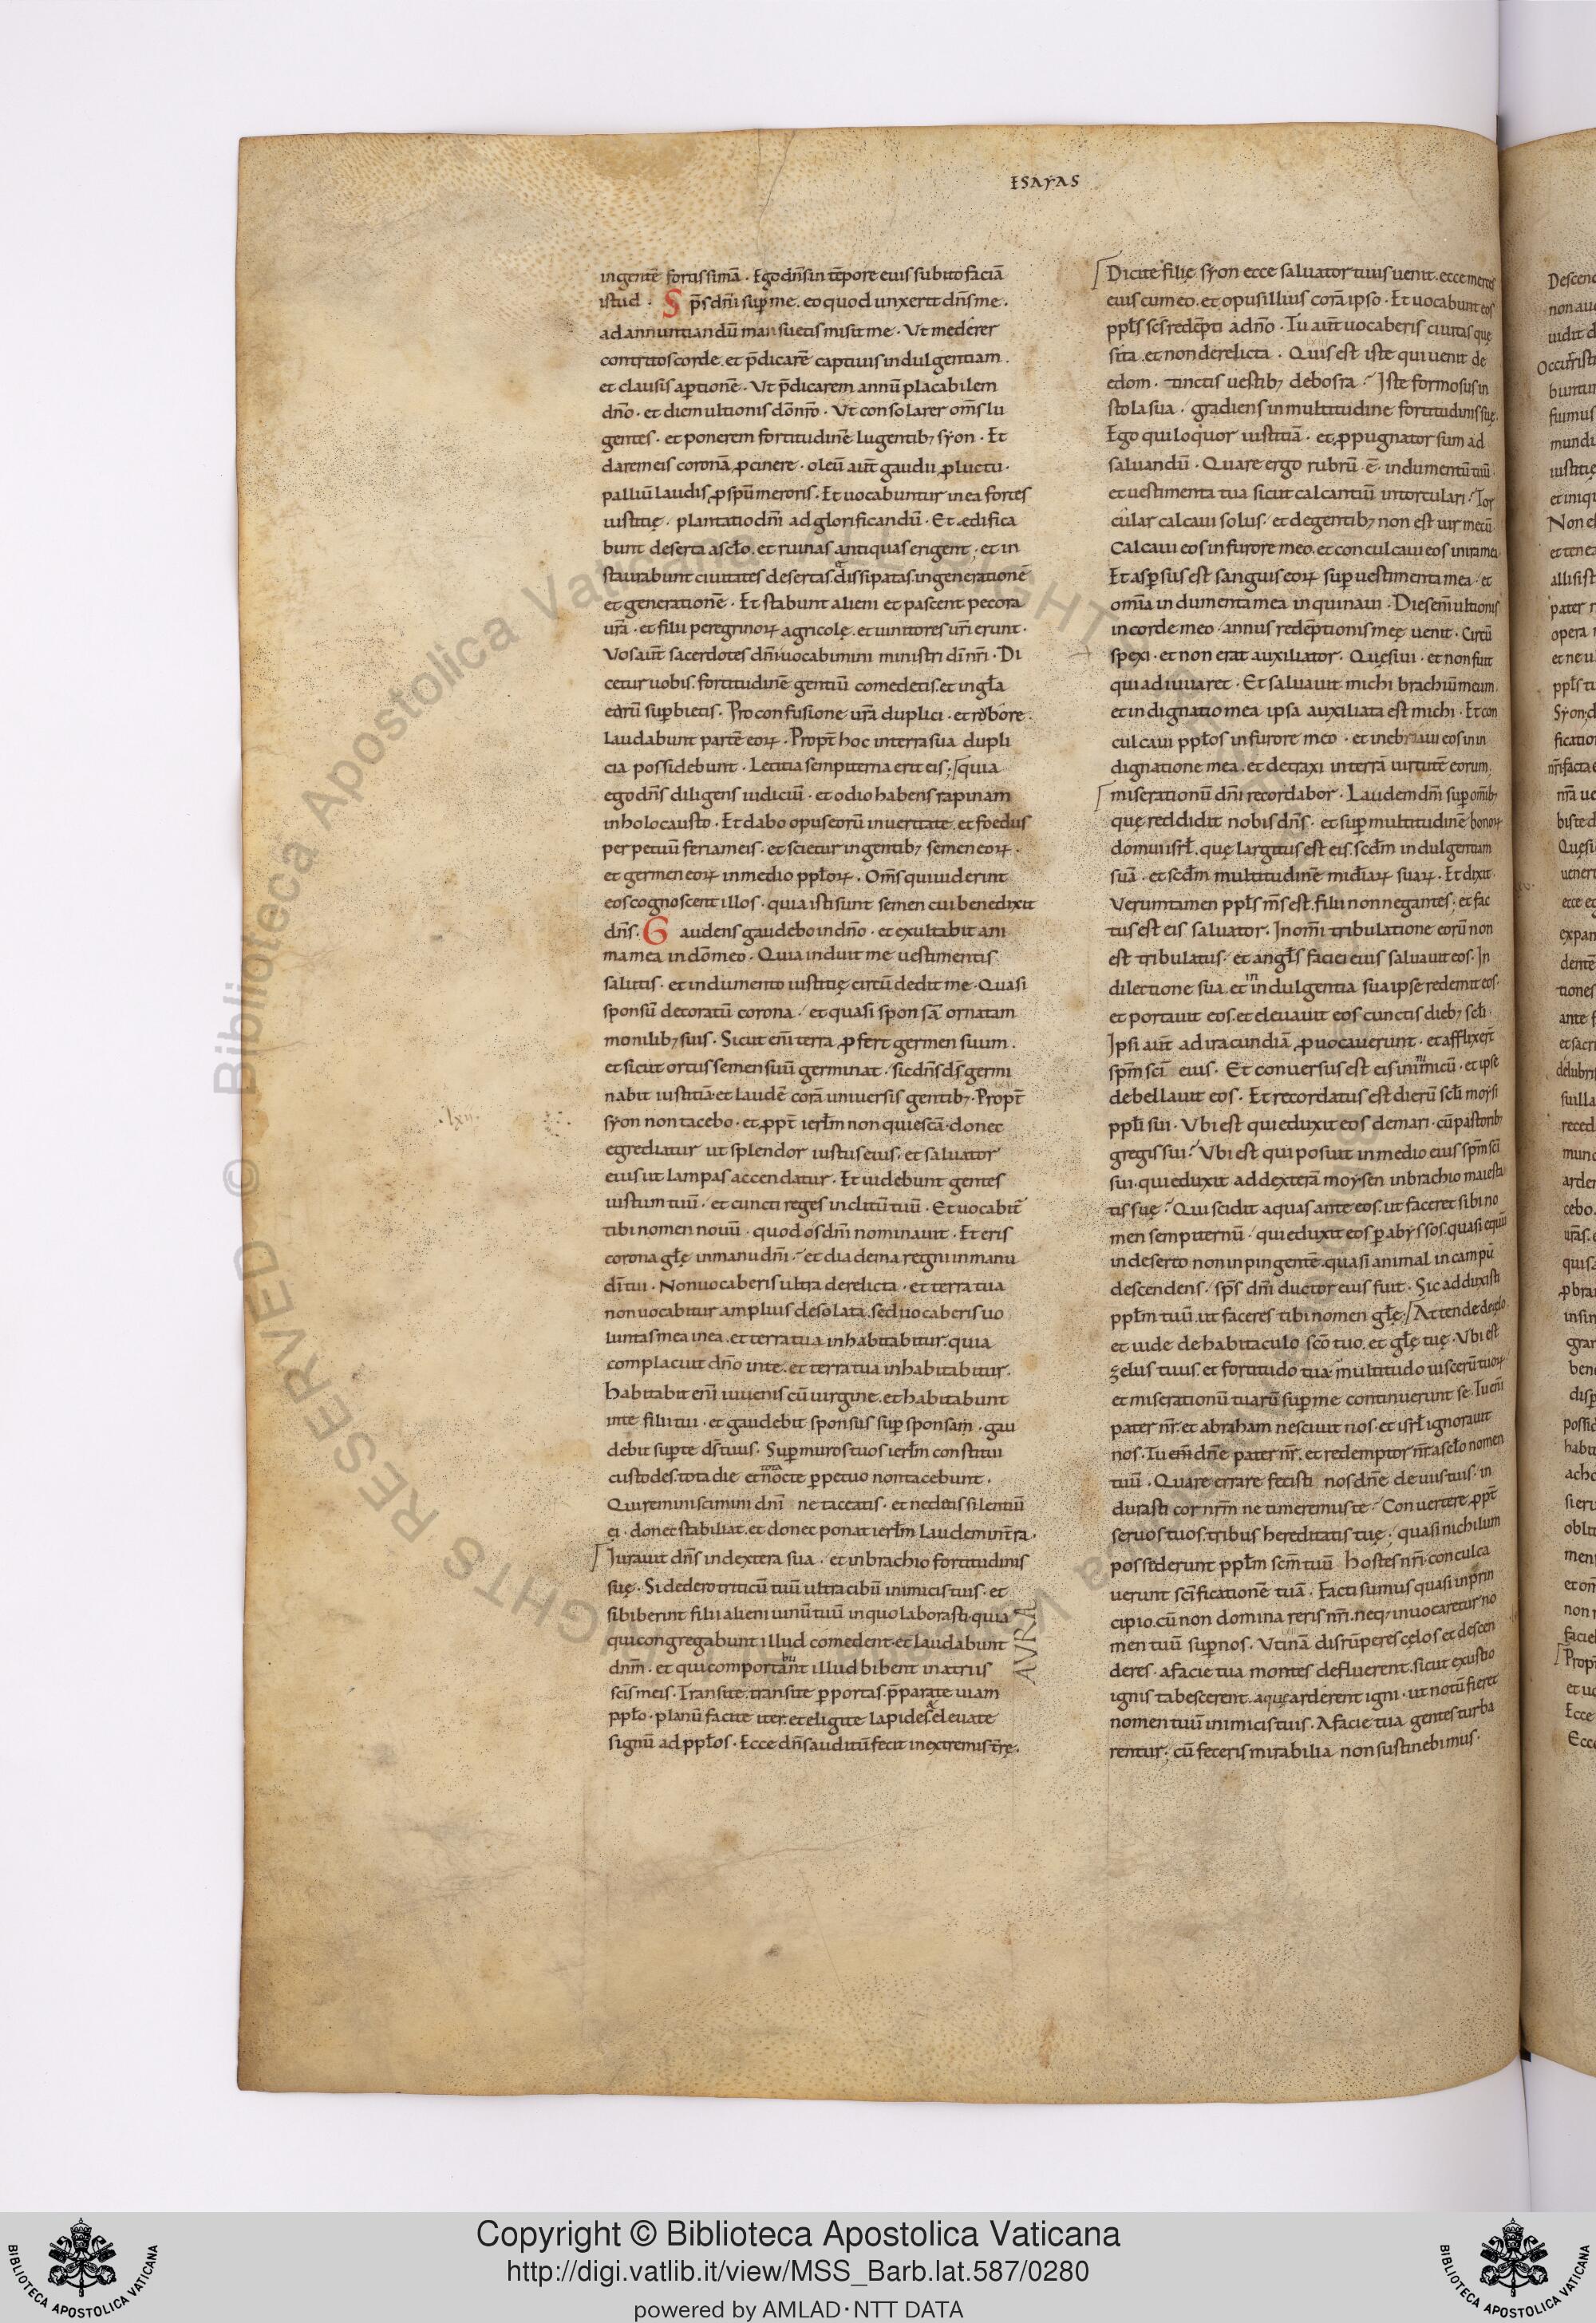 ESAYAS
in gentē fortissimā · Ego dn̄s in tēpore eius subito faciā
istud · S p̄s dn̄i sup̄ me. eo quod unxerit dn̄s me.
ad annuntiandū mansuetis misit me · Ut mederer
contritos corde. et p̄dicarē captiuis indulgentiam.
et clausis ap̄tionē · Ut p̄dicarem annū placabilem
dn̄o · et diem ultionis dō nr̄o · Ut consolarer om̄s lu
gentes · et ponerem fortitudinē lugentib; syon · Et
darem eis coronā ꝓ cinere · oleū aut̄ gaudii ꝓ luctu ·
palliū laudis ꝓ spū meroris · Et uocabuntur in ea fortes
iustitię · plantatio dn̄i ad glorificandū · Et edifica
bunt deserta a sełο. et ruinas antiquas erigent · et in
staurabunt ciuitates desertas. dissipatas. in generationē
et generationē · Et stabunt alieni et pascent pecora
ur̄a · et filii peregrinoꝝ agricolę. et uinitores ur̄i erunt ·
Vos aut̄ sacerdotes dn̄i uocabimini ministri dī nr̄i · Di
cetur uobis. fortitudinē gentiū comedetis. et in gła
earū sup̄bietis · Pro confusione ur̄a duplici · et robore.
laudabunt partē eoꝝ · Propt̄ hoc in terra sua dupli
cia possidebunt · Letitia sempiterna erit eis; quia
ego dn̄s diligens iudiciū · et odio habens rapinam
in holocausto · Et dabo opus eorū in ueritate. et foedus
perpetuū feriam eis · et scietur in gentib; semen eoꝝ ·
et germen eoꝝ in medio ppłoꝝ · Om̄s qui uiderint
eos cognoscent illos · quia isti sunt semen cui benedixit
dn̄s. G audens gaudebo in dn̄o · et exultabit ani
ma mea in dō meo · Quia induit me uestimentis
salutis · et indumento iustitię circū dedit me · Quasi
sponsū decoratū corona · et quasi sponsā ornatam
monilib; suis · Sicut eni terra ꝓfert germen suum.
et sicut ortus semen suū germinat · sic dn̄s ds̄ germi
nabit iustitiā et laudē corā uniuersis gentib; · Propt̄
lxii.
syon non tacebo · et ꝓpt̄ ierłm non quiescā · donec
egrediatur ut splendor iustus eius · et saluator
eius ut lampas accendatur · Et uidebunt gentes
iustum tuū · et cuncti reges inclitū tuū · Et uocabit̄
tibi nomen nouū · quod os dn̄i nominauit · Et eris
corona głę in manu dn̄i · et diadema regni in manu
dī tui · Non uocaberis ultra derelicta · et terra tua
non uocabitur amplius desolata. sed uocaberis uo
luntas mea in ea. et terra tua inhabitabitur. quia
complacuit dn̄o in te. et terra tua inhabitabitur.
Habitabit eni iuuenis cū uirgine. et habitabunt
in te filii tui · et gaudebit sponsus sup̄ sponsam · gau
debit sup̄ te ds̄ tuus · Sup̄ muros tuos ierłm constitui
custodes. tota die et tota nocte p̄petuo non tacebunt.
Qui reminiscimini dn̄i ne taceatis · et ne detis silentiū
ei · donec stabiliat. et donec ponat ierłm laudem in t̄ra.
Iurauit dn̄s in dextera sua · et in brachio fortitudinis
suę · Si dedero triticū tuū ultra cibū inimicis tuis · et
si biberint filii alieni uinū tuū in quo laborasti. quia
qui congregabunt illud comedent. et laudabunt
AVRA
dn̄m · et qui comportabunt illud bibent in atriis
scīs meis · Transite. transite p̄ portas. p̄parate uiam
ppło · planū facite iter. et eligite lapides. eleuate
signū ad ppłos · Ecce dn̄s auditū fecit in extremis t̄rę.
Dicite filię syon ecce saluator tuus uenit. ecce merces
eius cum eo. et opus illius corā ipso · Et uocabunt eos
ppłs scs̄ redēpti a dn̄o · Tu aut̄ uocaberis ciuitas quę
sita. et non derelicta · Quis est iste qui uenit de
edom · tinctis uestib; de bosra? Iste formosus in
stola sua · gradiens in multitudine fortitudinis suę.
Ego qui loquor iustitiā · et ꝓpugnator sum ad
saluandū · Quare ergo rubrū · ē · indumentū tuū ·
et uestimenta tua sicut calcantiū in torculari? Tor
cular calcaui solus · et de gentib; non est uir mecū
Calcaui eos in furore meo. et conculcaui eos in ira mea
Et asp̄sus est sanguis eoꝝ sup̄ uestimenta mea · et
omīa indumenta mea inquinaui · Dies eni ultionis
in corde meo · annus redēptionis meę uenit · Circū
spexi · et non erat auxiliator · Quęsiui · et non fuit
qui adiuuaret · Et saluauit michi brachiū meum.
et indignatio mea ipsa auxiliata est michi · Et con
culcaui ppłos in furore meo · et inebriaui eos in in
dignatione mea. et detraxi in terrā uirtutē eorum.
miserationū dn̄i recordabor · Laudem dn̄i sup̄ om̄ib;
quę reddidit nobis dn̄s · et sup̄ multitudinē bonoꝝ
domui isrł. quę largitus est eis. scdm̄ indulgentiam
suā · et scdm̄ multitudinē mīdiaꝝ suaꝝ · Et dixit ·
Verumtamen ppłs m̄s est. filii non negantes; et fac
tus est eis saluator. In omī tribulatione eorū non
est tribulatus · et angłs faciei eius saluauit eos · In
dilectione sua. et in indulgentia sua ipse redemit eos ·
et portauit eos. et eleuauit eos cunctis dieb; scłi ·
Ipsi aut̄ ad iracundiā ꝓuocauerunt · et afflixert̄
spm̄ scī eius · Et conuersus est eis in inimicū · et ipse
debellauit eos · Et recordatus est dierū scłi moysi
ppłi sui · Ubi est qui eduxit eos de mari · cū pastorib;
gregis sui? Ubi est qui posuit in medio eius spm̄ scī
sui. qui eduxit ad dexterā moysen in brachio maiesta
tis suę? Qui scidit aquas ante eos. ut faceret sibi no
men sempiternū · qui eduxit eos p̄ abyssos. quasi equū
in deserto non inpingentē. quasi animal in campū
descendens · sps̄ dn̄i ductor eius fuit · Sic adduxisti
ppłm tuū. ut faceres tibi nomen głę; Attende de cęlo.
et uide de habitaculo scō tuo. et głę tuę · Ubi est
zelus tuus. et fortitudo tua. multitudo uiscerū tuoꝝ
et miserationū tuarū sup̄ me continuerunt se · Tu eni
pater nr̄. et abraham nesciuit nos · et isrł ignorauit
nos · Tu eni dn̄e pater nr̄. et redemptor nr̄. a sełο nomen
tuū · Quare errare fecisti nos dn̄e de uiis tuis · in
durasti cor nr̄m ne timeremus te? Conuertere ꝓpt̄
seruos tuos. tribus hereditatis tuę; quasi nichilum
possederunt ppłm scm̄ tuū Hostes nr̄i conculca
uerunt scīficationē tuā · Facti sumus quasi in prin
cipio. cū non dominareris nr̄i. neq; inuocaretur no
men tuū sup̄ nos · Utinā disrūperes cęlos et descen
deres · a facie tua montes defluerent. sicut exustio
ignis tabescerent. aquę arderent igni · ut notū fieret
nomen tuū inimicis tuis · A facie tua gentes turba
rentur; cū feceris mirabilia non sustinebimus ·
Copyright © Biblioteca Apostolica Vaticana
http://digi.vatlib.it/view/MSS_Barb.lat.587/0280
powered by AMLAD·NTT DATA